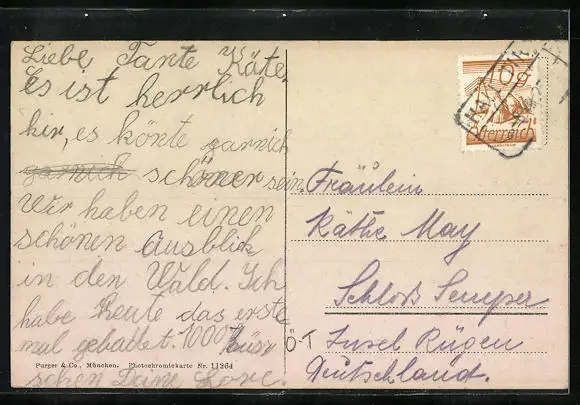 Liebe Tante Käte.
Es ist herrlich
hir, es könte garnich
garnich schöner sein.
Wir haben einen
schönen Ausblik
in den Wald. Ich
habe heute das erste
mal gebattet. 1000 Küs
schen Deine Lore.
Purger & Co., München. Photochromiekarte Nr. 11364
Österreich
Fräulein
Käthe May
Schloß Semper
Ö-T Insel Rügen
Deutschland.